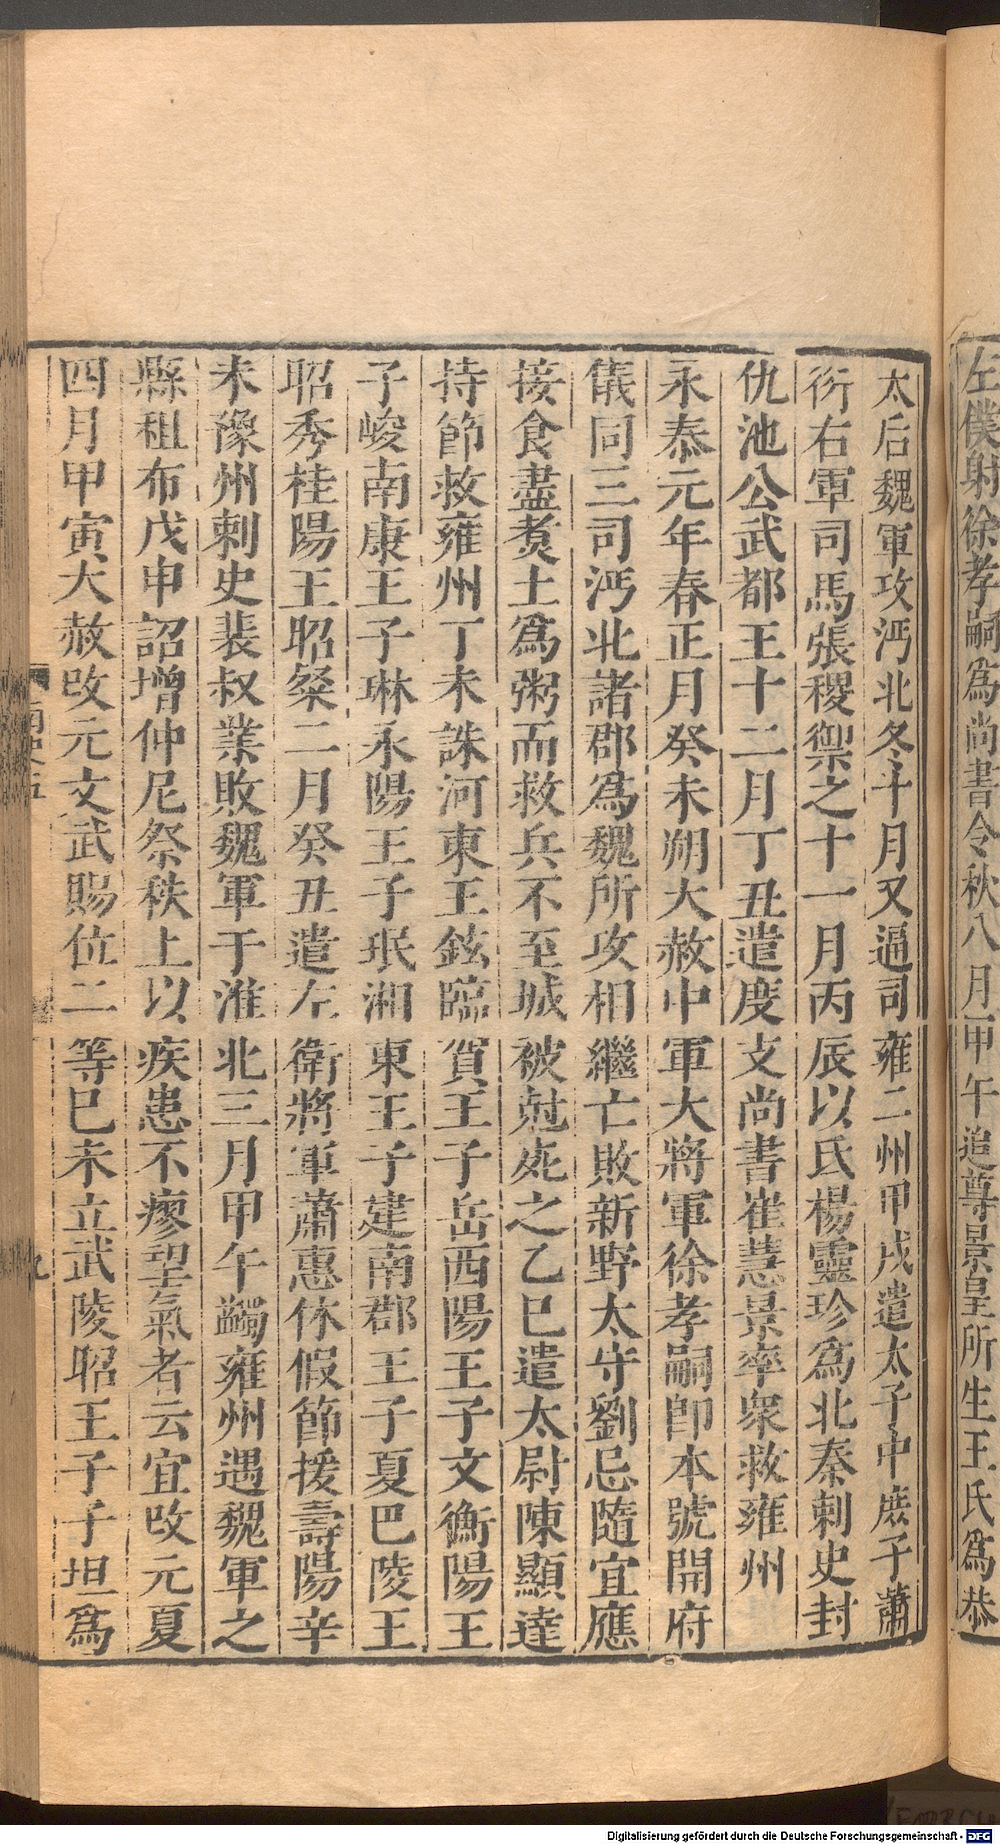 左僕射徐孝嗣爲尚書令秋八月甲午追尊景皇所生王氏爲恭
太后魏軍攻沔北冬十月又逼司雍二州甲戌遣太子中庶子蕭
衍右軍司馬張稷禦之十一月丙辰以氐楊靈珍爲北秦刺史封
仇池公武都王十二月丁丑遣度支尚書崔慧景率衆救雍州
永泰元年春正月癸未朔大赦中軍大將軍徐孝嗣即本號開府
儀同三司沔北諸郡爲魏所攻相繼亡敗新野太守劉忌隨宜應
接食盡煑土爲粥而救兵不至城被尅死之乙巳遣太尉陳顯達
持節救雍州丁未誅河東王鉉臨賀王子岳西陽王子文衡陽王
子峻南康王子琳永陽王子珉湘東王子建南郡王子夏巴陵王
昭秀桂陽王昭粲二月癸丑遣左衛將軍蕭惠休假節援壽陽辛
未豫州刺史裴叔業敗魏軍于淮北三月甲午蠲雍州遇魏軍之
縣租布戊申詔增仲尼祭秩上以疾患不瘳望氣者云宜改元夏
四月甲寅大赦改元文武賜位二等巳未立武陵昭王子子坦爲
南史五
九
Digitalisierung gefördert durch die Deutsche Forschungsgemeinschaft - DFG